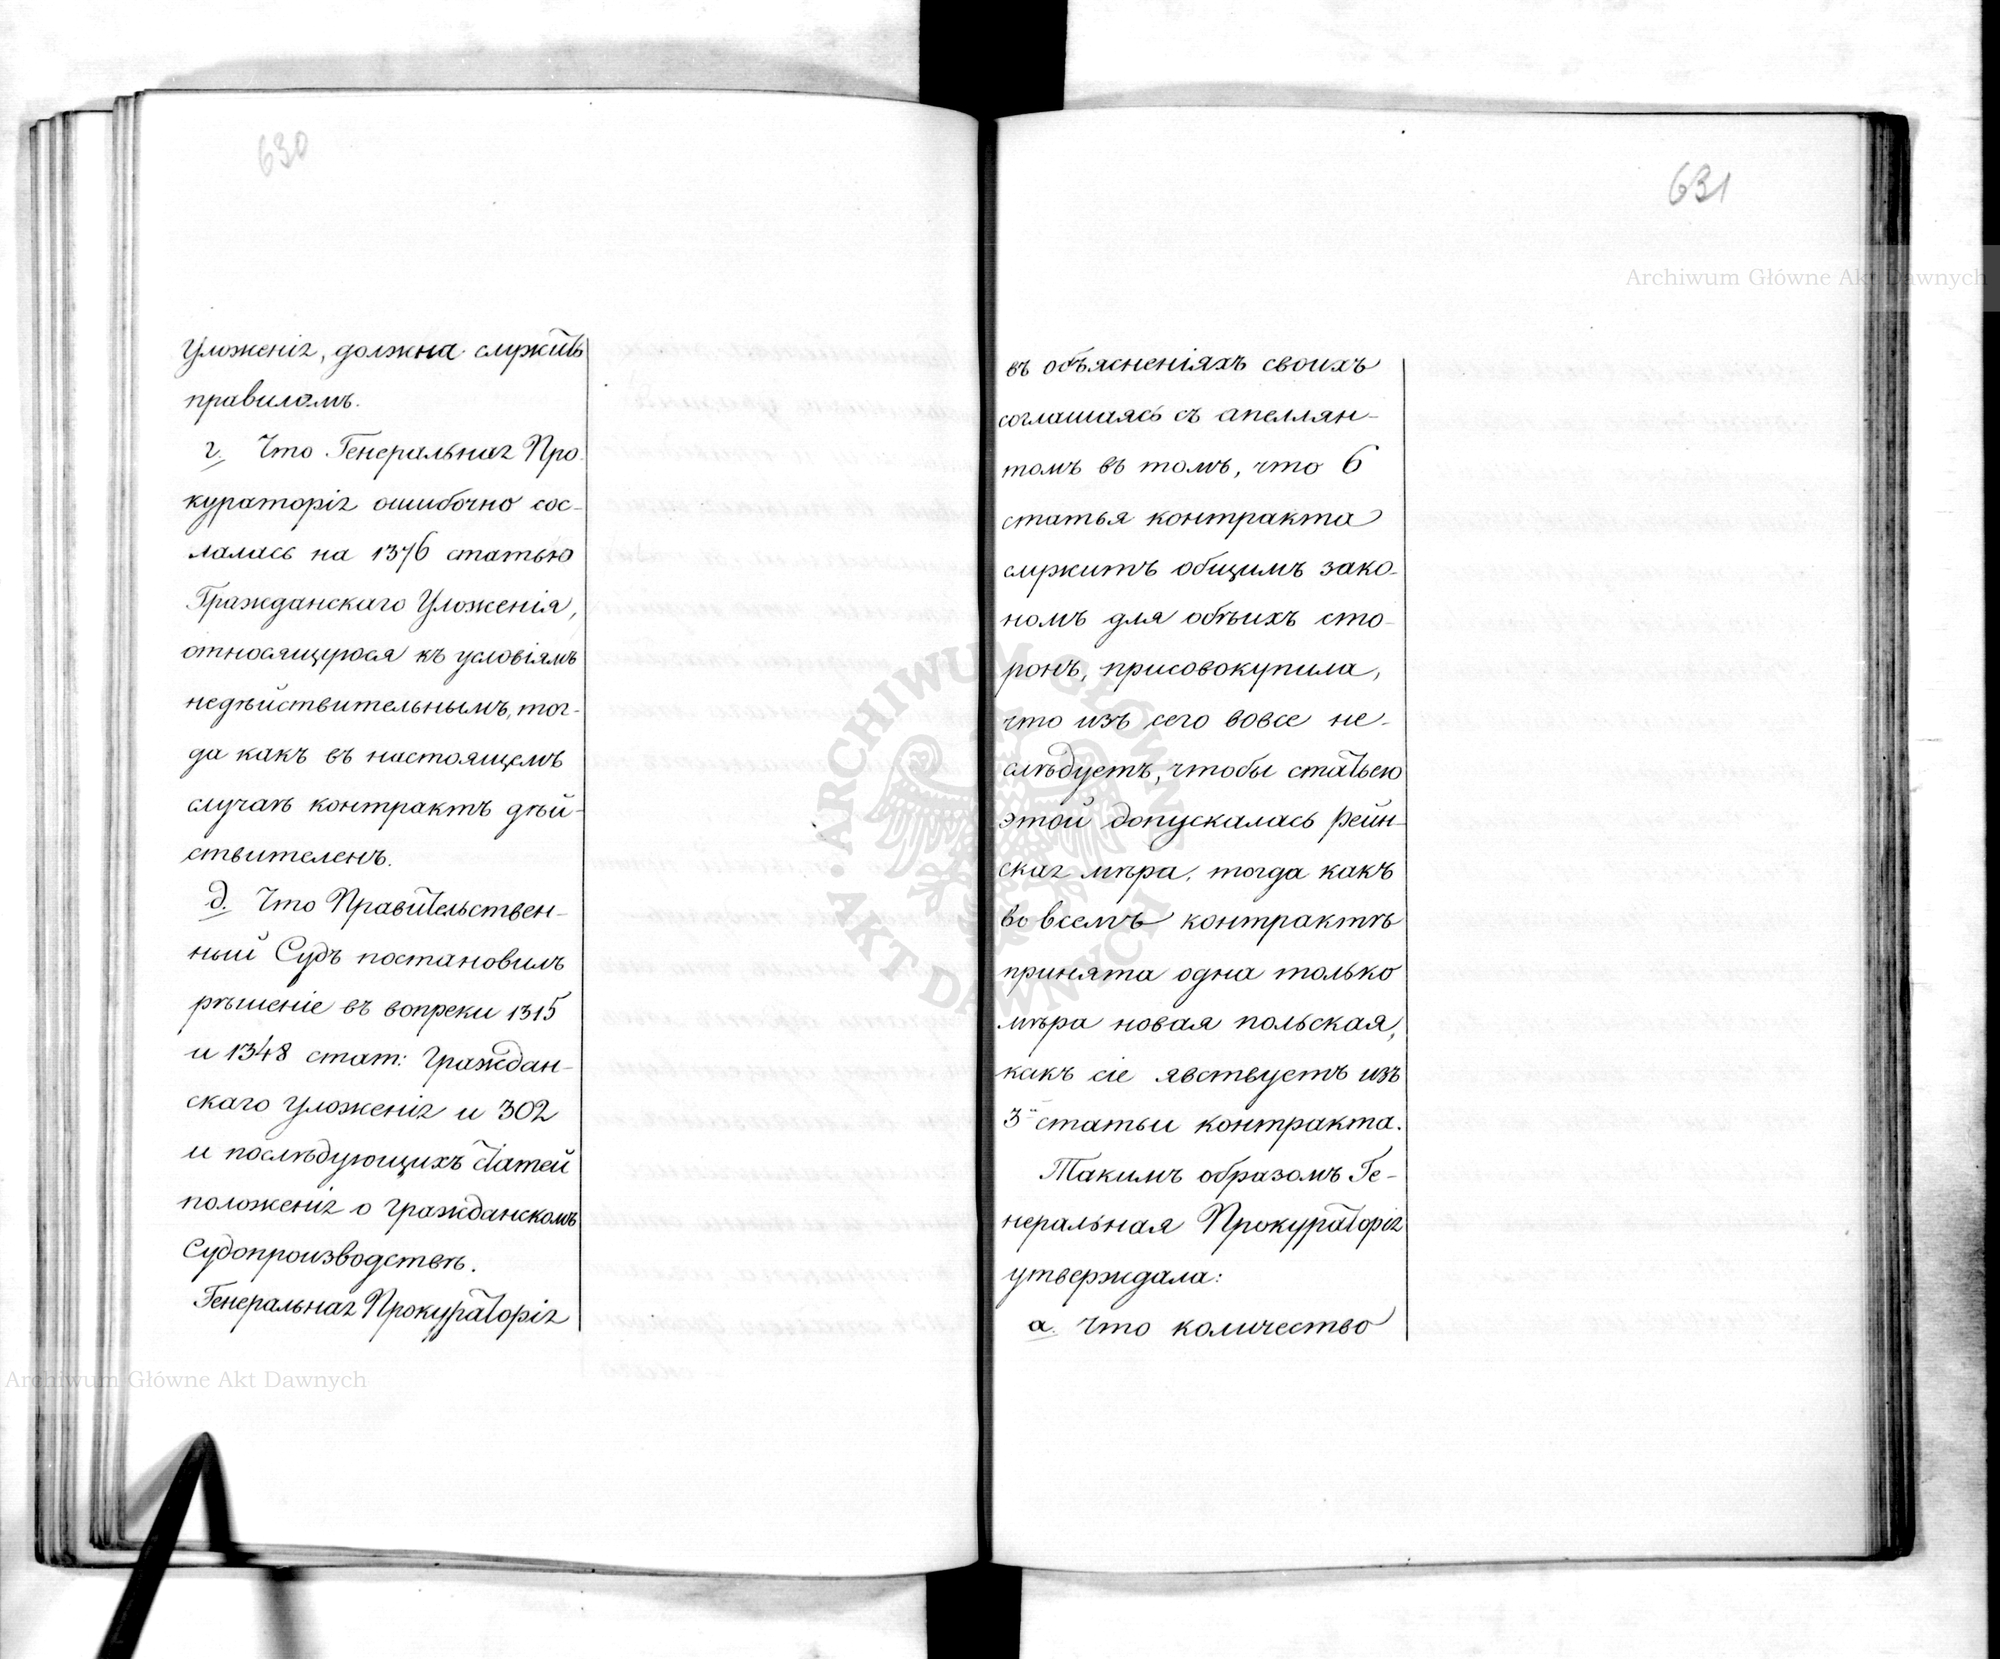 630
Уложенія, должна служить
правиломъ.
г. Что Генеральная Про-
кураторія ошибочно сос-
лалась на 1376 статью
Гражданскаго Уложенія,
относящуюся къ условіямъ
недѣйствительнымъ, тог-
да какъ въ настоящемъ
случаѣ контрактъ дѣй-
ствителенъ.
д. Что Правительствен-
ный Судъ постановилъ
рѣшеніе въ вопреки 1315
и 1348 стат: Граждан-
скаго Уложенія и 302
и послѣдующихъ статей
положенія о гражданскомъ
Судопроизводствѣ.
Генеральная Прокураторія
631
въ объясненіяхъ своихъ
соглашаясь съ апеллян-
томъ въ томъ, что 6
статья контракта
служитъ общимъ зако-
номъ для обѣихъ сто-
ронъ, присовокупила,
что изъ сего вовсе не-
слѣдуетъ, чтобы статьею
этой допускалась рейн-
ская мѣра, тогда какъ
во всемъ контрактѣ
принята одна только
мѣра новая польская,
какъ сіе явствуетъ изъ
3й статьи контракта.
Такимъ образомъ Ге-
неральная Прокураторія
утверждала:
а. Что количество
Archiwum Główne Akt Dawnych
Archiwum Główne Akt Dawnych
ARCHIWUM GŁÓWNE
AKT DAWNYCH